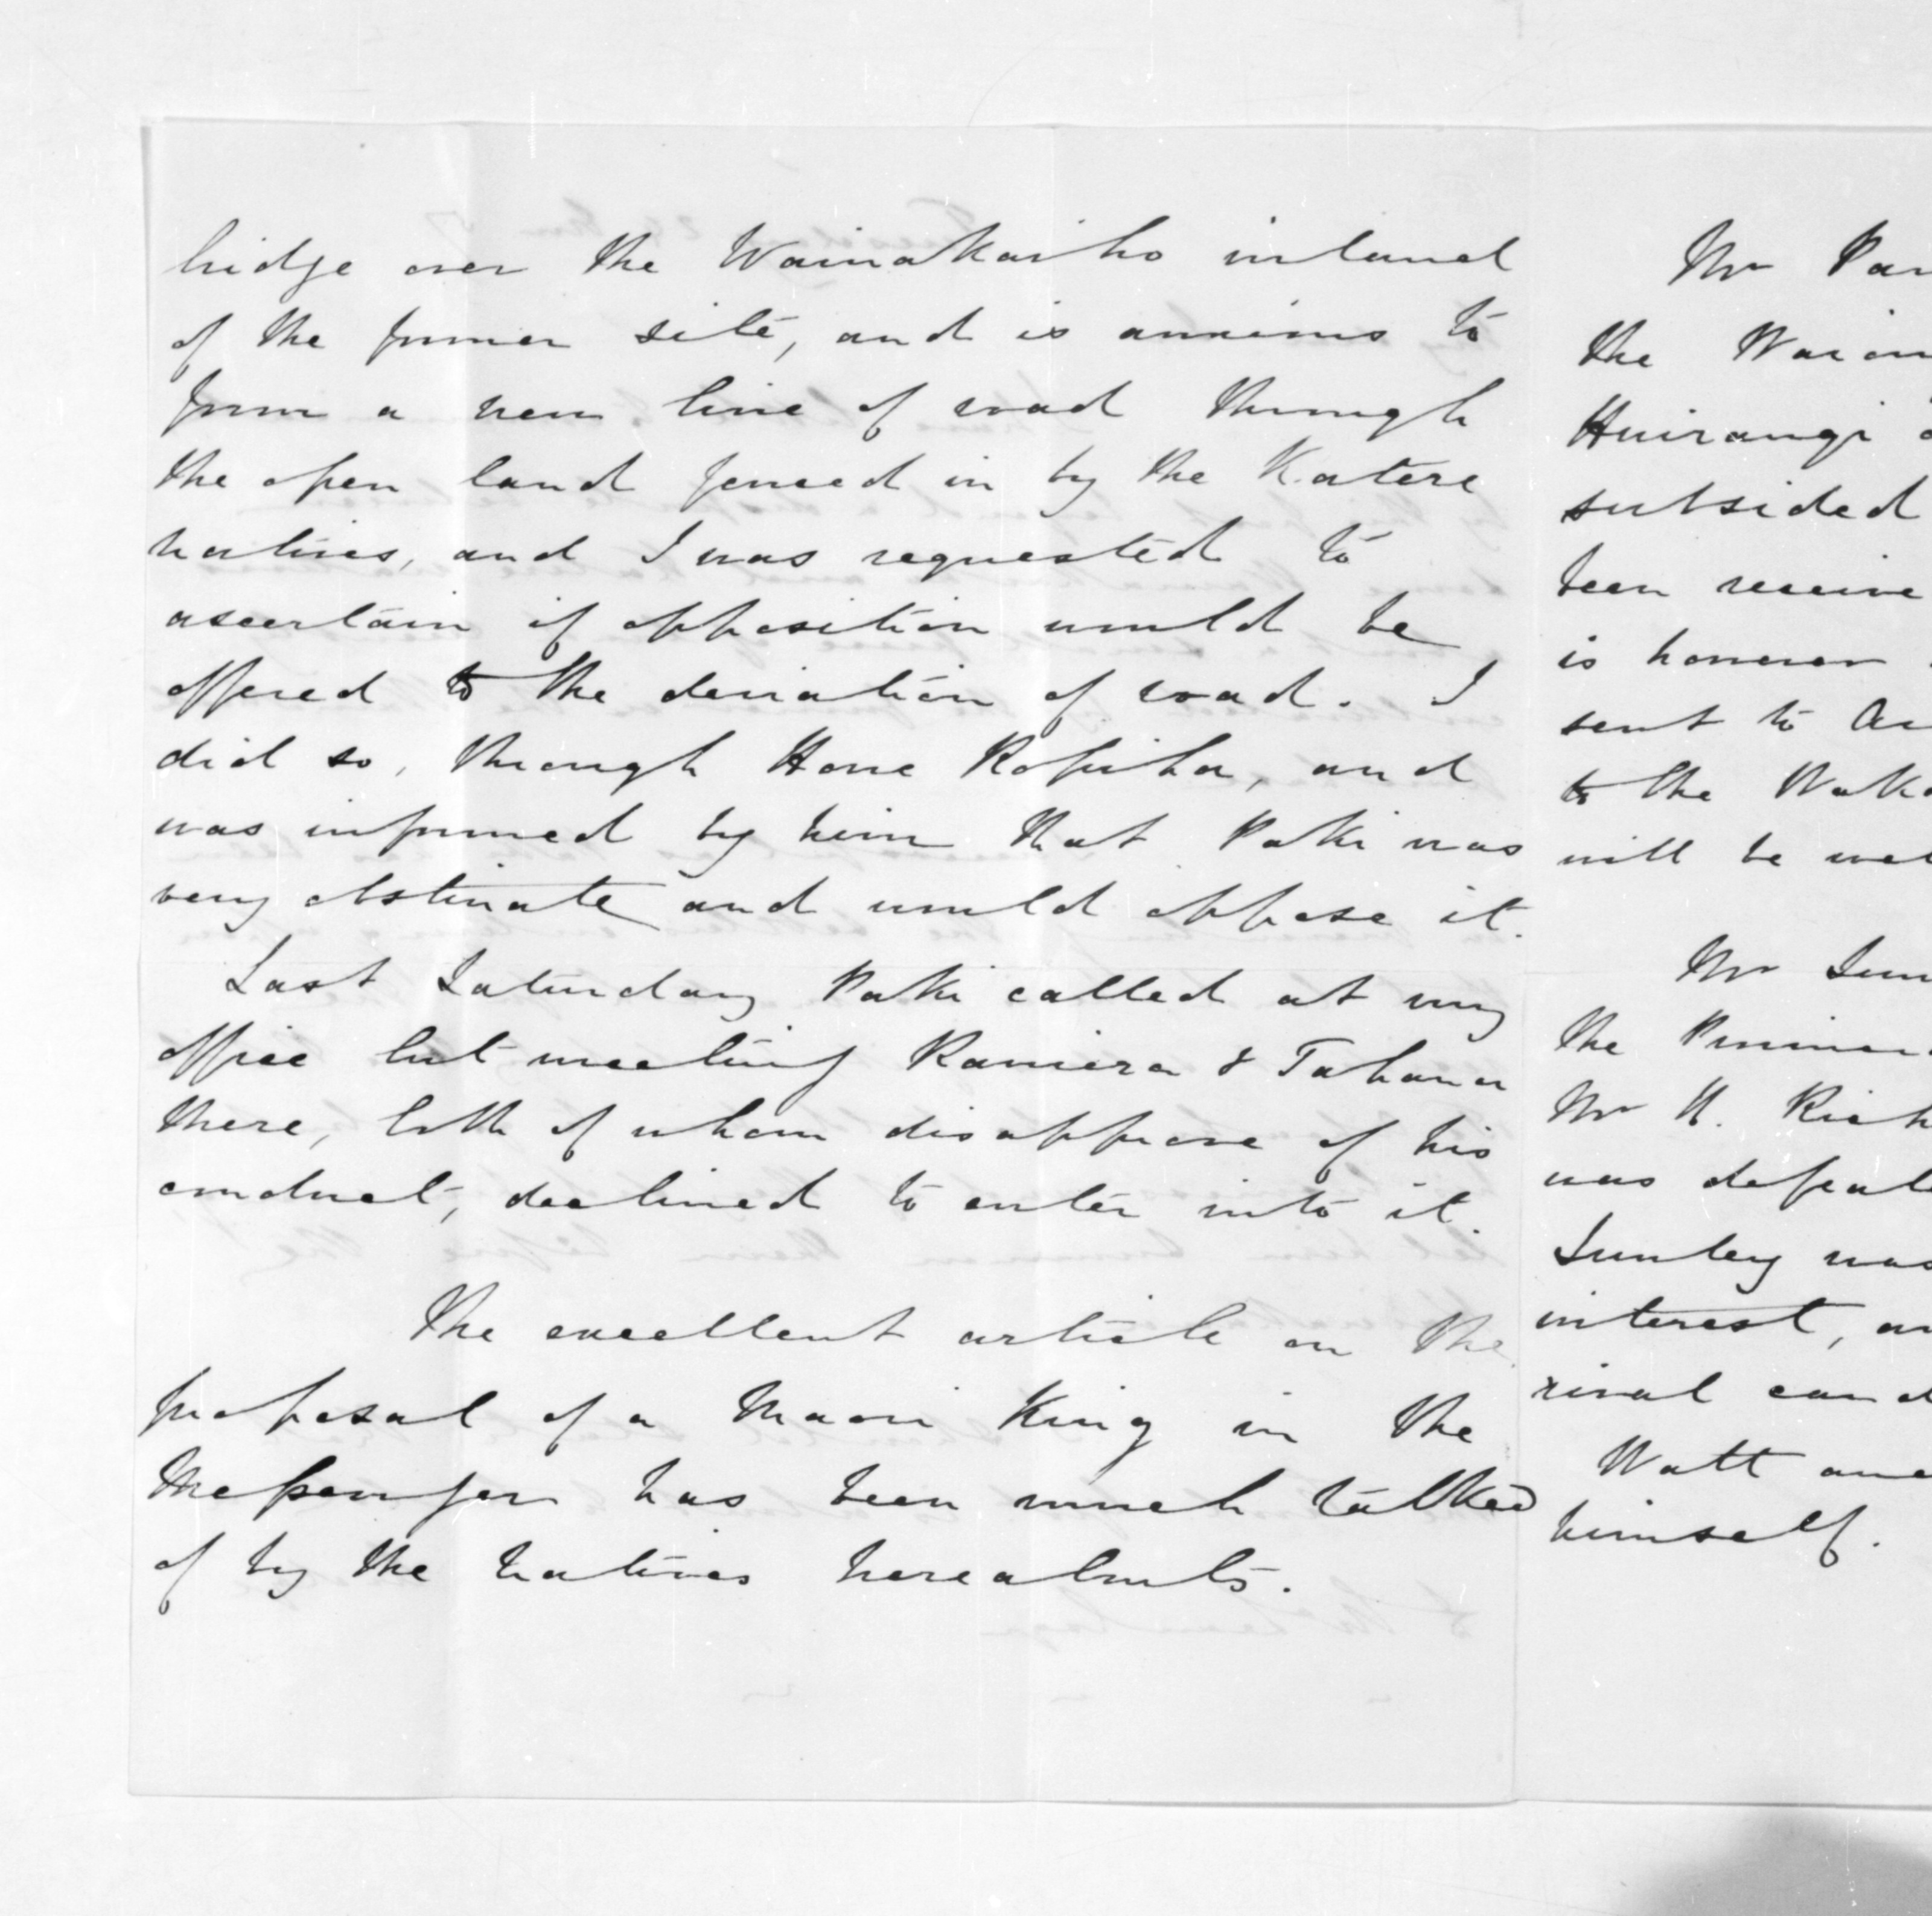 bridge over the Waiwakaiho inland
of the former site, and is anxious to
form a new line of road through
the open land fenced in by the Katere
natives, and I was requested to
ascertain if opposition would be
offered to the deviation of road. I
did so, through Hone Ropiha, and
was informed by him that Poki was
very obstinate and would oppose it.
Last Saturday Poki called at my
office but meeting Raniera & Tahana
there, both of whom disapprove of his
conduct, declined to enter into it.
The excellent article on the
proposal of a Maori King in the
Messenger has been much talked
of by the natives hereabouts.
Mr Par
the Wai
Huirangi
subsided
been receive
is however
sent to
to the
will be
Mr
the
Mr H. Rich
was
was
interest, an
rival cand
Watt and
himself.